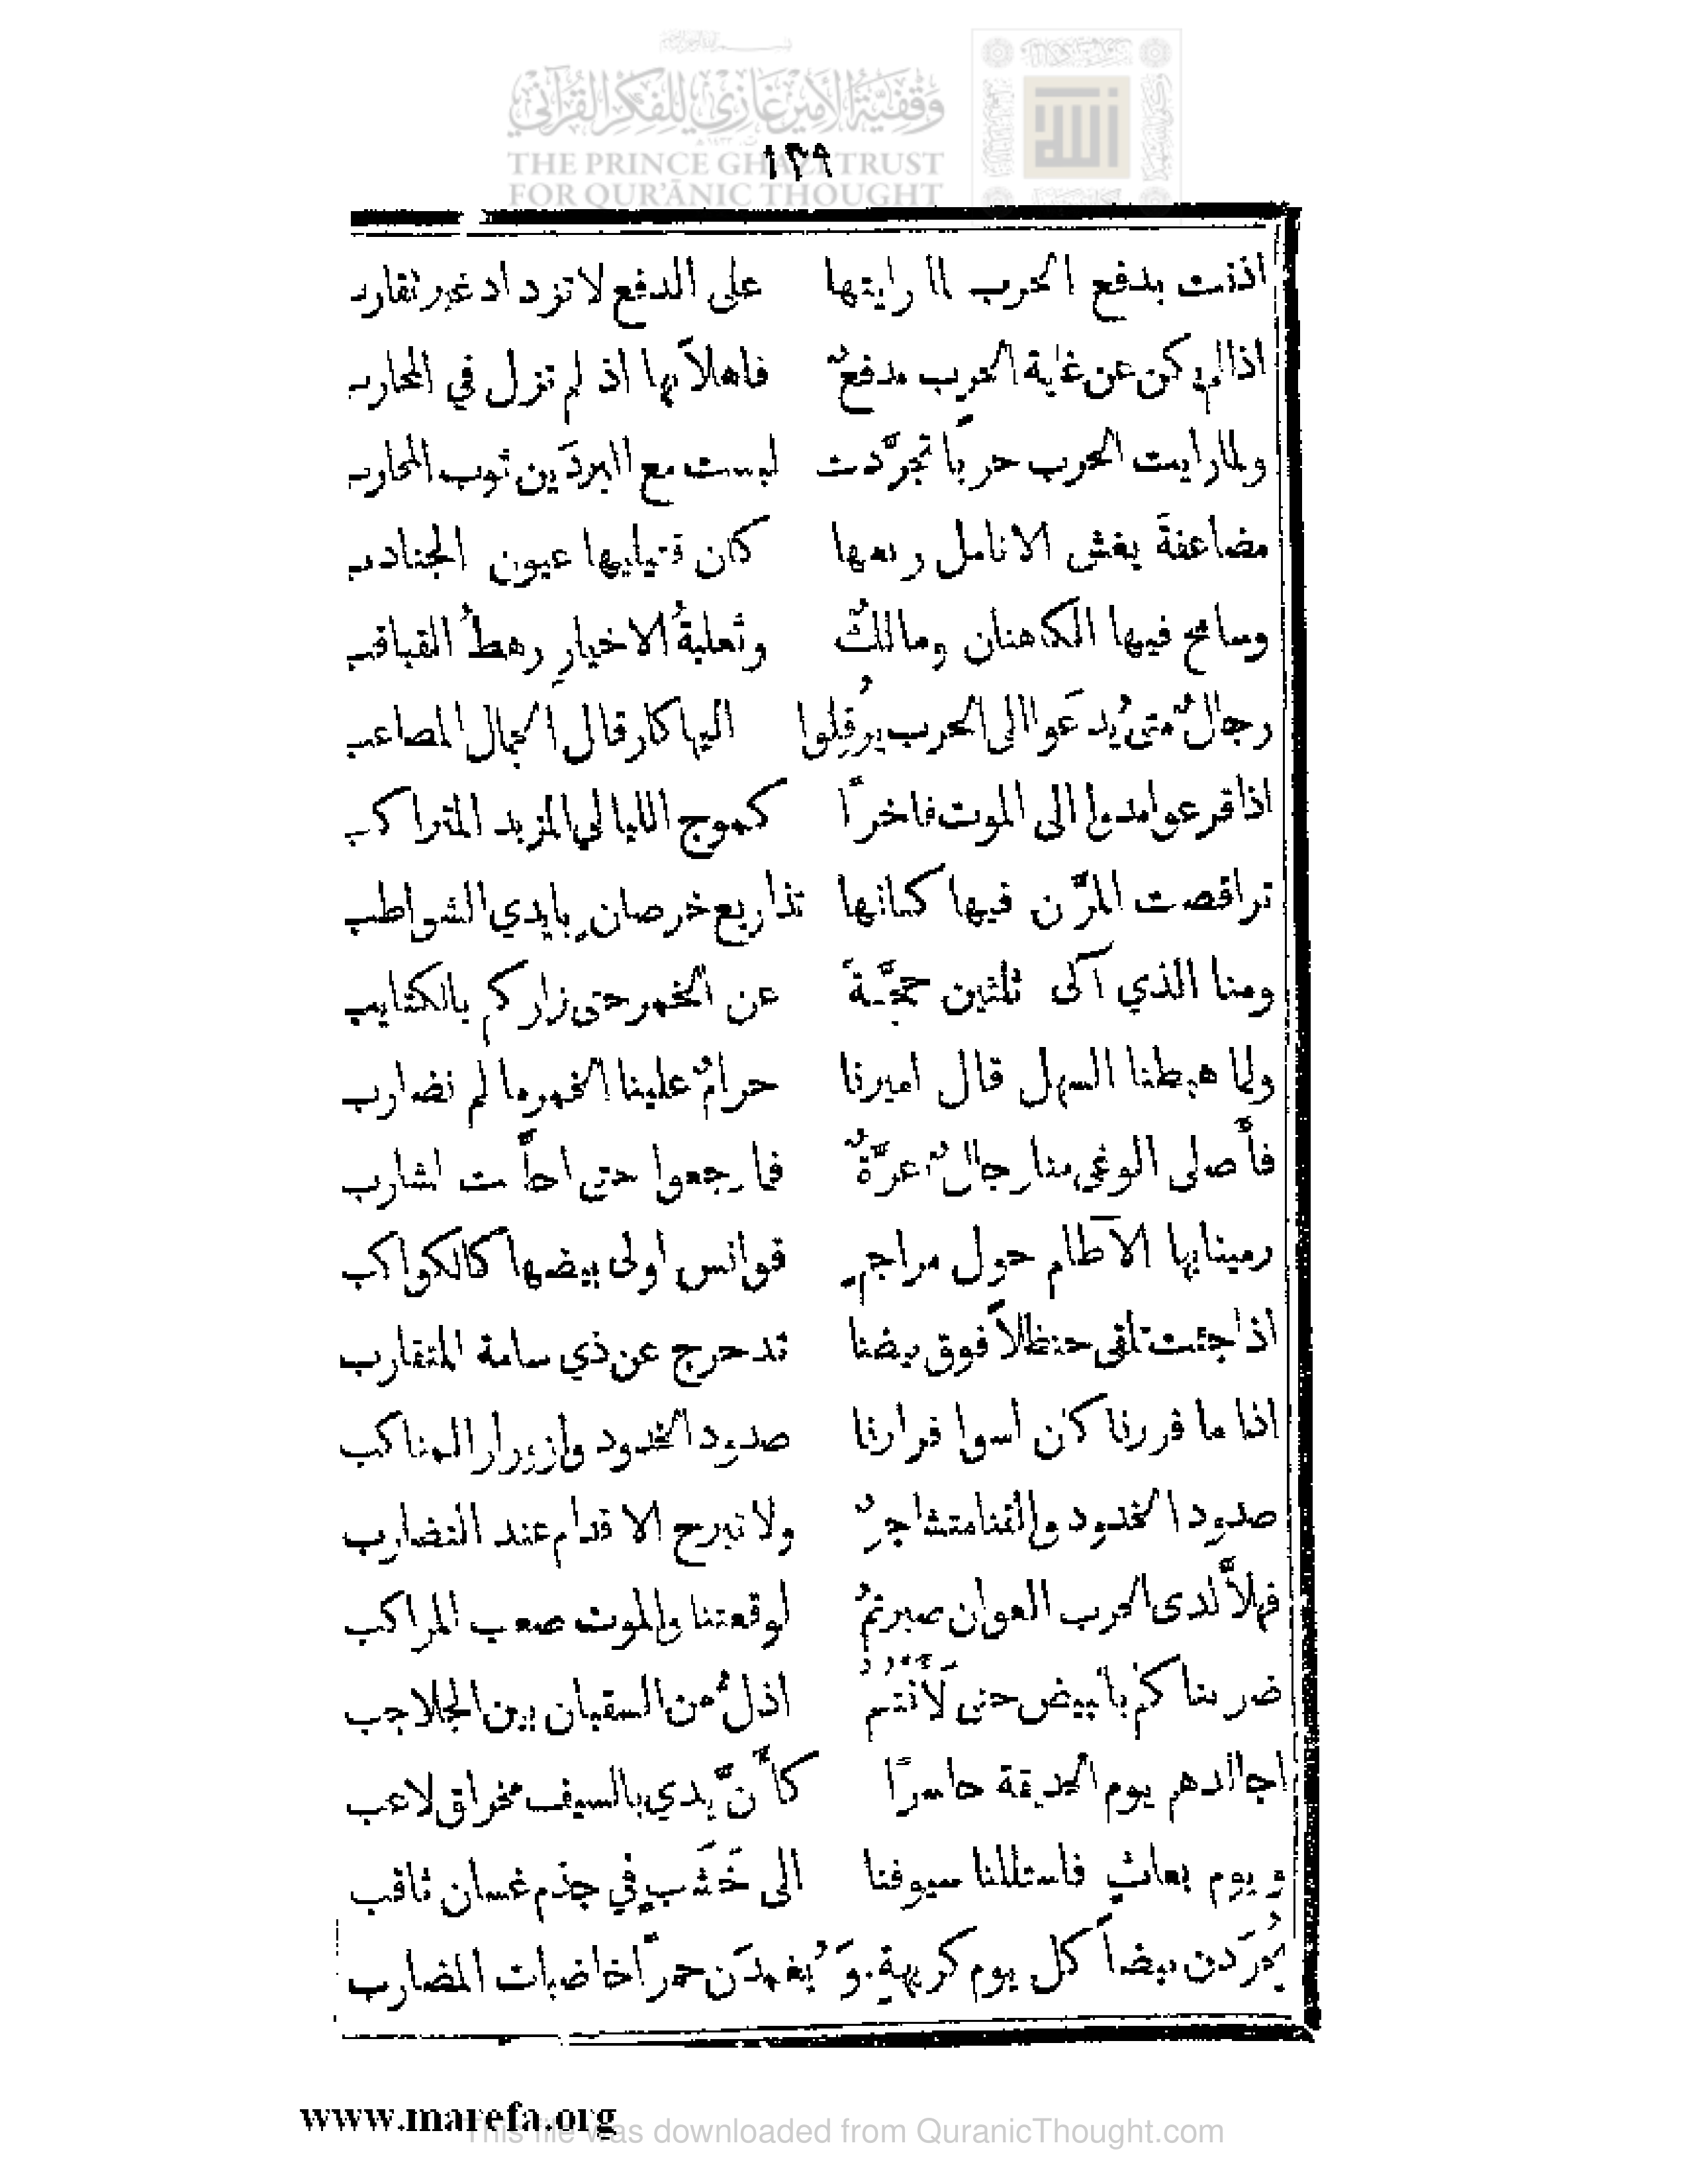 وقفية الأمير غازي للفكر القرآني
THE PRINCE GHAZI TRUST
FOR QUR'ĀNIC THOUGHT
١٣٩
اذنت بدفع الحرب لما رايتها على الدفع لا تزداد غير تقارب
اذا لم يكن عن غاية الحرب مدفعٌ فاهلاً بها اذ لم تزل في المحارب
ولما رايت الحرب حربًا تجرَّدت لبست مع البردَين ثوب المحارب
مضاعفةَ يغشى الانامل ريعها كان قتيايها عيون الجنادب
وسامح فيها الكاهنان ومالكٌ وثعلبةُ الاخيارِ رهطُ القباقب
رجالٌ متى يُدعَوا الى الحرب يُرقِلوا اليها كارقال الجمال المصاعب
اذا فرعوا مدوا الى الموت فاخرًا كموج الليالي المزبد المتراكب
تراقصت المرَّن فيها كانها تذاريع خرصانٍ بايدي الشواطب
ومنا الذي آلى ثلثين حجَّةَ عن الخمر حتى زاركم بالكتايب
ولما هبطنا السهل قال اميرنا حرامٌ علينا الخمر ما لم نضارب
فأَصلى الوغى منا رجالٌ اعزَّةٌ فما رجعوا حتى احلَّت لشارب
رمينا بها الآطام حول مراجمٍ قوانس اولى بيضها كالكواكب
اذا جئت تلقى حنظلاً فوق بيضنا تدحرج عن ذي سامة المتقارب
اذا ما فررنا كان اسوا فرارنا صدود الخدود وازورار المناكب
صدود الخدود والقنا متشاجرٌ ولا تبرح الاقدام عند التضارب
فهلاَّ لدى الحرب العوان صبرتمُ لوقعتنا والموت صعب المراكب
ضربناكم بالبيض حتى لَأَنتمُ اذلُّ من السقبان بين الجلاجب
اجالدهم يوم الحديقة حاسرًا كأَنَّ يدي بالسيف مخراق لاعب
ويوم بعاثٍ فاستللنا سيوفنا الى خَشَبٍ في جذم غسان ثاقب
يُجردن بيضاً كل يوم كريهةٍ وَيُغمدَن حمرًا خاضبات المضارب
www.marefa.org
This file was downloaded from QuranicThought.com